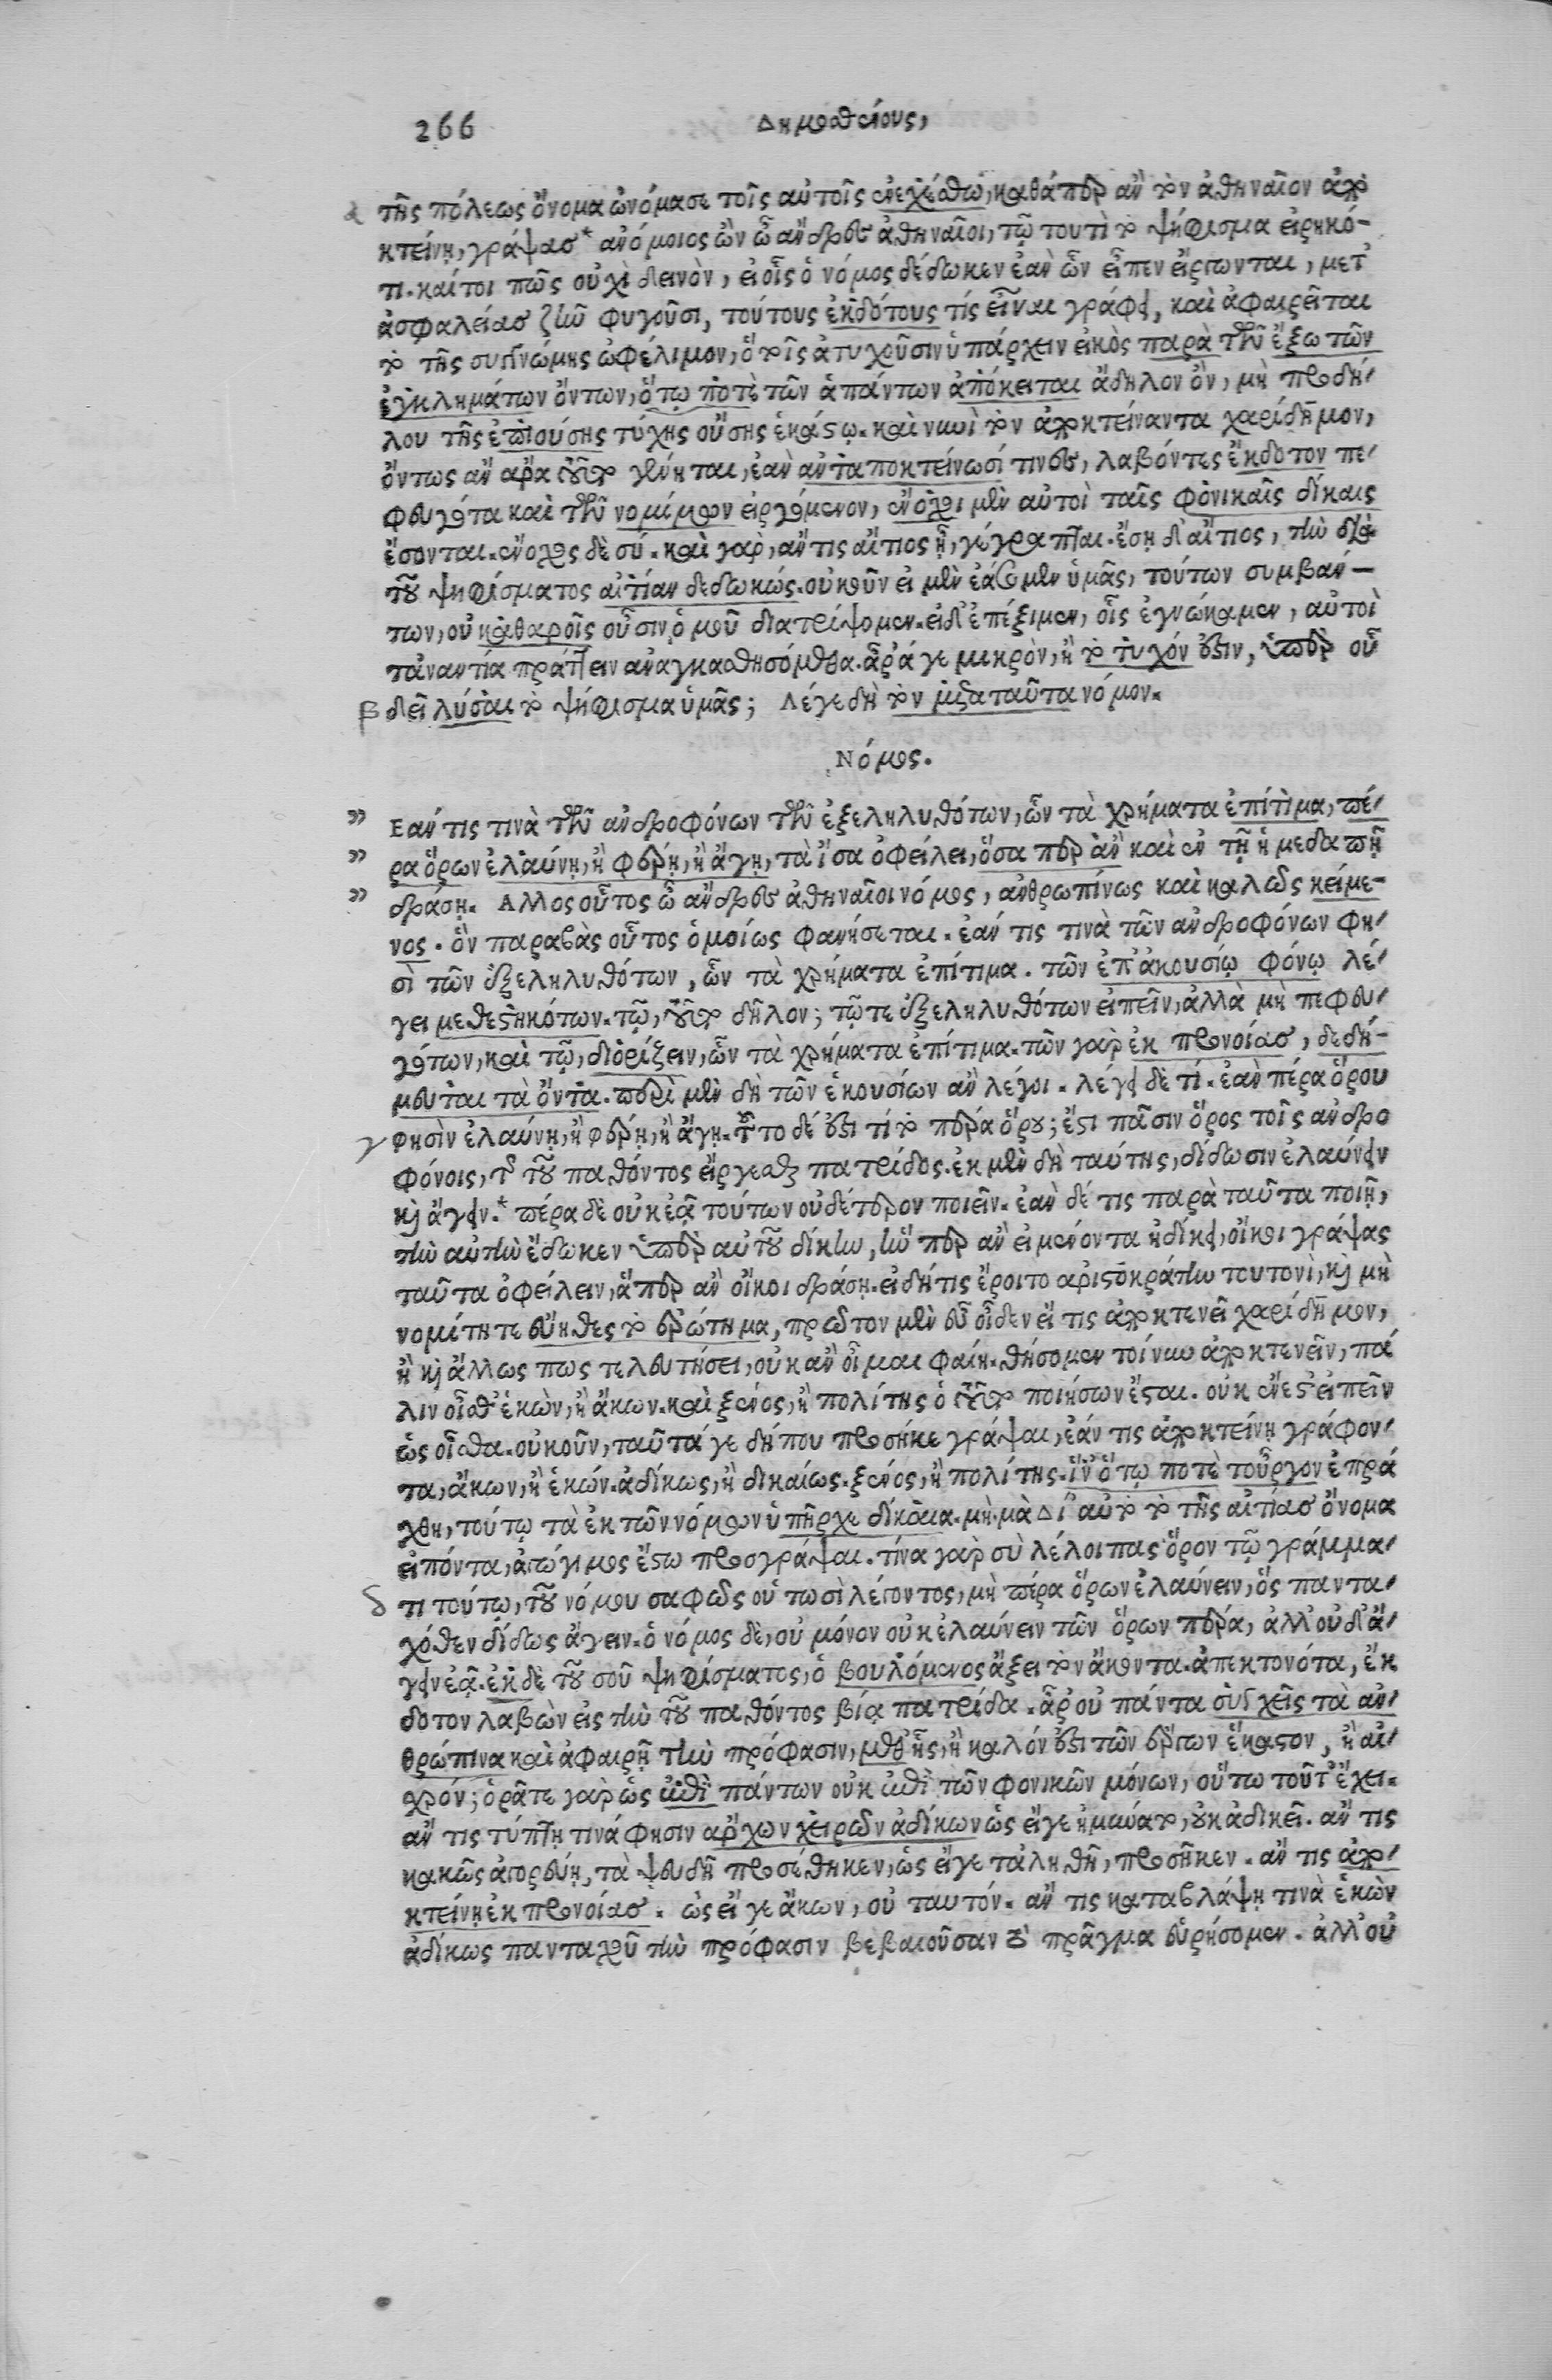 266
Δημοσθένους,
α τῆς πόλεως ὄνομα ὠνόμασε τοῖς αὐτοῖς ἐνεχέσθω, καθάπερ ἂν τὸν ἀθηναῖον ἀπο
κτείνῃ, γράψας * ἀνόμοιος ὢν ὦ ἄνδρες ἀθηναῖοι, τῷ τουτὶ τὸ ψήφισμα εἰρηκό-
τι. καίτοι πῶς οὐχὶ δεινὸν, εἰ οἷς ὁ νόμος δέδωκεν ἐὰν ὧν εἶπεν εἴργωνται, μετ'
ἀσφαλείας ζῆν φυγοῦσι, τούτους ἐκδότους τίς εἶναι γράφει, καὶ ἀφαιρεῖται
τὸ τῆς συγγνώμης ὠφέλιμον, ὃ τοῖς ἀτυχοῦσιν ὑπάρχειν εἰκὸς παρὰ τῶν ἔξω τῶν
ἐγκλημάτων ὄντων, ὅτῳ ποτὲ τῶν ἁπάντων ἀπόκειται ἄδηλον ὂν, μὴ προδή-
λου τῆς ἐπιούσης τύχης οὔσης ἑκάστῳ. καὶ νυνὶ τὸν ἀποκτείναντα χαρίδημον,
ὄντως ἂν ἄρα τοῦτο γένηται, ἐὰν ἀνταποκτείνωσί τινες, λαβόντες ἔκδοτον πε-
φευγότα καὶ τῶν νομίμων εἰργόμενον, ἔνοχοι μὲν αὐτοὶ ταῖς φονικαῖς δίκαις
ἔσονται. ἔνοχος δὲ σύ. καὶ γὰρ, ἄν τις αἴτιος ᾖ, γέγραπται. ἔσῃ δ' αἴτιος, τὴν διὰ
τοῦ ψηφίσματος αἰτίαν δεδωκώς. οὐκοῦν εἰ μὲν ἐάσομεν ὑμᾶς, τούτων συμβάν-
των, οὐ καθαροῖς οὖσιν ὁμοῦ διατρίψομεν. εἰ δ' ἐπέξιμεν, οἷς ἐγνώκαμεν, αὐτοὶ
τἀναντία πράττειν ἀναγκασθησόμεθα. ἆρά γε μικρὸν, ἢ τὸ τυχόν ἐστιν, ὑπὲρ οὗ
β δεῖ λύσαι τὸ ψήφισμα ὑμᾶς; Λέγε δὴ τὸν μετὰ ταῦτα νόμον.
Νόμος.
" Εάν τις τινὰ τῶν ἀνδροφόνων τῶν ἐξεληλυθότων, ὧν τὰ χρήματα ἐπίτιμα, πέ-
" ρα ὅρων ἐλαύνῃ, ἢ φέρῃ, ἢ ἄγῃ, τὰ ἴσα ὀφείλει, ὅσα περ ἂν καὶ ἐν τῇ ἡμεδαπῇ
" δράσῃ. Αλλος οὗτος ὦ ἄνδρες ἀθηναῖοι νόμος, ἀνθρωπίνως καὶ καλῶς κείμε-
νος. ὃν παραβὰς οὗτος ὁμοίως φανήσεται. ἐάν τις τινὰ τῶν ἀνδροφόνων φη-
σὶ τῶν ἐξεληλυθότων, ὧν τὰ χρήματα ἐπίτιμα. τῶν ἐπ' ἀκουσίῳ φόνῳ λέ-
γει μεθεστηκότων. τῷ, τοῦτο δῆλον; τῷ τε ἐξεληλυθότων εἰπεῖν, ἀλλὰ μὴ πεφευ-
γότων, καὶ τῷ, διορίζειν, ὧν τὰ χρήματα ἐπίτιμα. τῶν γὰρ ἐκ προνοίας, δεδή-
μευται τὰ ὄντα. περὶ μὲν δὴ τῶν ἑκουσίων ἂν λέγοι. λέγει δὲ τί. ἐὰν πέρα ὅρου
γ φησὶν ἐλαύνῃ, ἢ φέρῃ, ἢ ἄγῃ. τοῦτο δέ ἐστι τί τὸ πέρα ὅρου; ἔστι πᾶσιν ὅρος τοῖς ἀνδρο
φόνοις, τῆς τοῦ παθόντος εἴργεσθαι πατρίδος. ἐκ μὲν δὴ ταύτης, δίδωσιν ἐλαύνειν
καὶ ἄγειν. * πέρα δὲ οὐκ ἐᾷ τούτων οὐδέτερον ποιεῖν. ἐὰν δέ τις παρὰ ταῦτα ποιῇ,
τὴν αὐτὴν ἔδωκεν ὑπὲρ αὐτοῦ δίκην, ἥν περ ἂν εἰ μένοντα ἠδίκει, οἴκοι γράψας
ταῦτα ὀφείλειν, ἅπερ ἂν οἴκοι δράσῃ. εἰ δή τις ἔροιτο ἀριστοκράτην τουτονὶ, καὶ μὴ
νομίσητε εὔηθες τὸ ἐρώτημα, πρῶτον μὲν εὖ οἶδεν εἴ τις ἀποκτενεῖ χαρίδημον,
ἢ καὶ ἄλλως πως τελευτήσει, οὐκ ἂν οἶμαι φαίη. θήσομεν τοίνυν ἀποκτενεῖν, πά
λιν οἶσθ' ἑκὼν, ἢ ἄκων. καὶ ξένος, ἢ πολίτης ὁ τοῦτο ποιήσων ἔσται. οὐκ ἔνεστ' εἰπεῖν
ὡς οἶσθα. οὐκοῦν, ταῦτά γε δήπου προσῆκε γράψαι, ἐάν τις ἀποκτείνῃ γράφον-
τα, ἄκων, ἢ ἑκών. ἀδίκως, ἢ δικαίως. ξένος, ἢ πολίτης. ἵν' ὅτῳ ποτὲ τοὖργον ἐπρά
χθη, τούτῳ τὰ ἐκ τῶν νόμων ὑπῆρχε δίκαια. μὴ μὰ Δί' αὐτὸ τὸ τῆς αἰτίας ὄνομα
εἰπόντα, ἀγώγιμος ἔστω προσγράψαι. τίνα γὰρ σὺ λέλοιπας ὅρον τῷ γράμμα-
δ τι τούτῳ, τοῦ νόμου σαφῶς οὑτωσὶ λέγοντος, μὴ πέρα ὅρων ἐλαύνειν, ὃς παντα-
χόθεν δίδως ἄγειν. ὁ νόμος δὲ, οὐ μόνον οὐκ ἐλαύνειν τῶν ὅρων πέρα, ἀλλ' οὐδ' ἄ-
γειν ἐᾷ. ἐκ δὲ τοῦ σοῦ ψηφίσματος, ὁ βουλόμενος ἄξει τὸν ἄκοντα. ἀπεκτονότα, ἔκ
δοτον λαβὼν εἰς τὴν τοῦ παθόντος βίᾳ πατρίδα. ἆρ' οὐ πάντα συγχεῖς τὰ ἀν-
θρώπινα καὶ ἀφαιρῇ τὴν πρόφασιν, μεθ' ἧς, ἢ καλόν ἐστι τῶν ἔργων ἕκαστον, ἢ αἰ-
σχρόν; ὁρᾶτε γὰρ ὡς ἐπὶ πάντων οὐκ ἐπὶ τῶν φονικῶν μόνων, οὕτω τοῦτ' ἔχει.
ἄν τις τύπτῃ τινά φησιν ἄρχων χειρῶν ἀδίκων ὡς εἴγε ἠμύνατο, οὐκ ἀδικεῖ. ἄν τις
κακῶς ἀγορεύῃ, τὰ ψευδῆ προσέθηκεν, ὡς εἴγε τἀληθῆ, προσῆκεν. ἄν τις ἀπο-
κτείνῃ ἐκ προνοίας. ὡς εἴ γε ἄκων, οὐ ταυτόν. ἄν τις καταβλάψῃ τινὰ ἑκὼν
ἀδίκως πανταχοῦ τὴν πρόφασιν βεβαιοῦσαν τὸ πρᾶγμα εὑρήσομεν. ἀλλ' οὐ